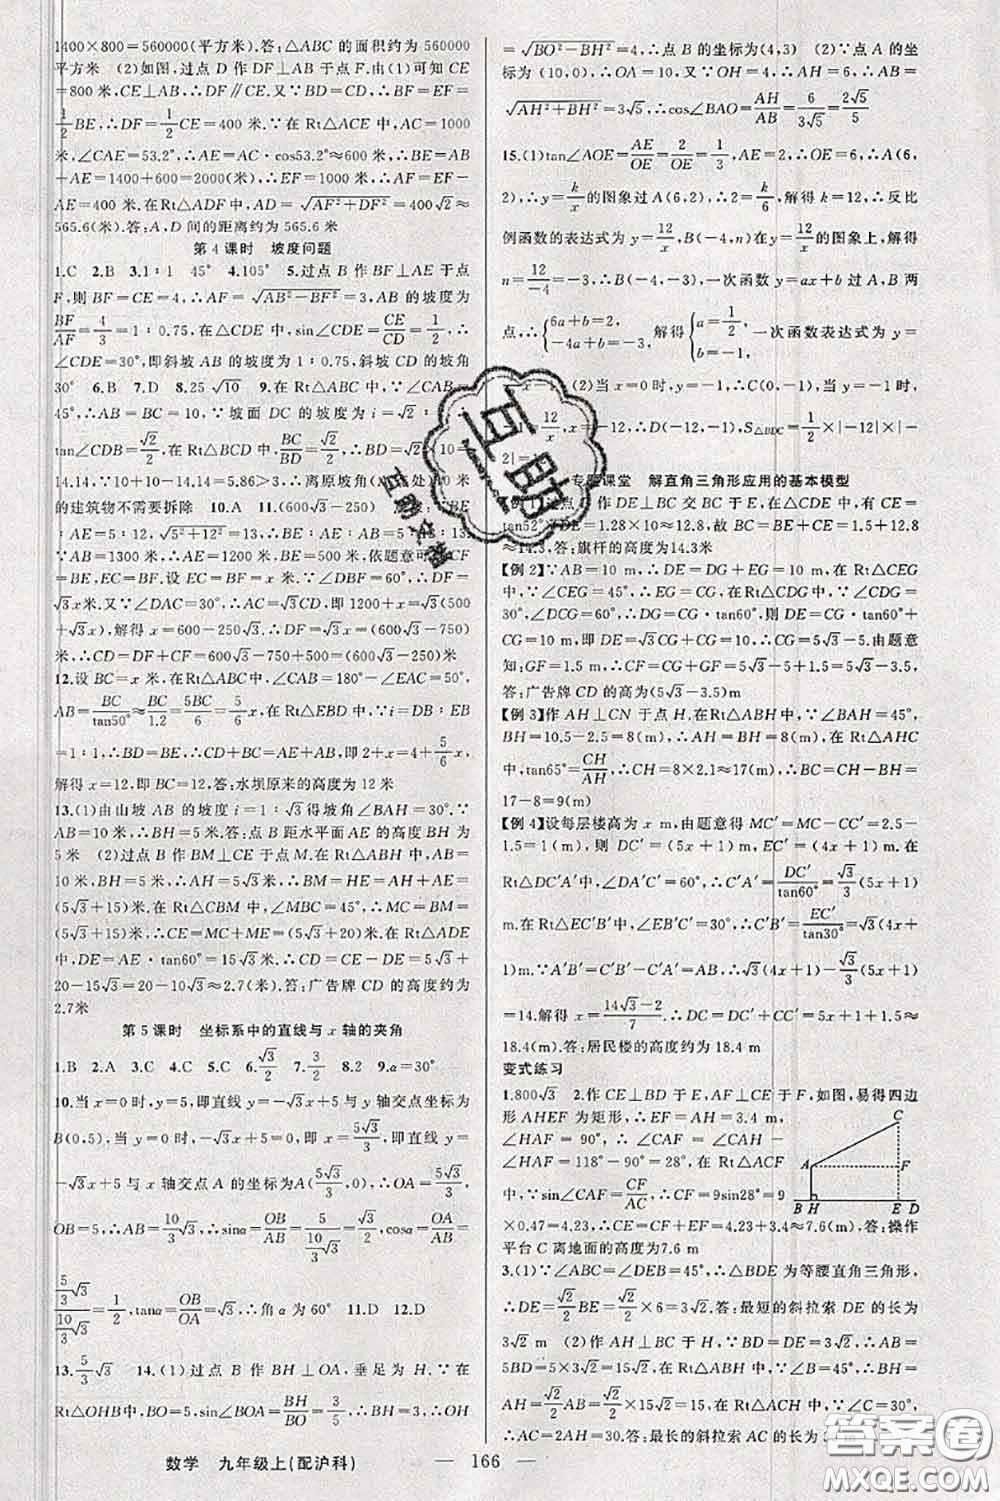 1400×800=560000(平方米).答:△ABC的面积约为560000
平方米 (2)如图,过点D作DF⊥AB于点F.由(1)可知CE
=800米,CE⊥AB,∴DF∥CE.又∵BD=CD,∴BF=EF=
1/2BE,∴DF=1/2CE=400米.∵在Rt△ACE中,AC=1000
米,∠CAE=53.2°,∴AE=AC·cos53.2°≈600米,∴BE=AB
+AE=1400+600=2000(米).∴EF=1000米,∴AF=EF-
AE=400米.在Rt△ADF中,AD=√(AF²+DF²)=400√2≈
565.6(米).答:A,D间的距离约为565.6米
第4课时 坡度问题
1.C 2.B 3.1∶1 45° 4.105° 5.过点B作BF⊥AE于点
F,则BF=CE=4,∴AF=√(AB²-BF²)=3,AB的坡度为
BF/AF=4/3=1∶0.75,在△CDE中,sin∠CDE=CE/CD=1/2,∴
∠CDE=30°,即斜坡AB的坡度为1∶0.75,斜坡CD的坡角
30° 6.B 7.D 8.25√10 9.在Rt△ABC中,∵∠CAB=
45°,∴AB=BC=10,∵坡面DC的坡度为i=√2∶
tan∠CDB=√2/2,在Rt△BCD中,BC/BD=√2/2,∴BD=
14.14,∵10+10-14.14=5.86>3,∴离原坡角
的建筑物不需要拆除 10.A 11.(600√3-250)
∶AE=5∶12,√(5²+12²)=13,∴BE∶AE∶AB=5∶12∶13,
∵AB=1300米,∴AE=1200米,BE=500米,依题意可
EC.设EC=x米,∵∠DBF=60°,∴DF=
√3x米.又∵∠DAC=30°,∴AC=√3CD.即1200+x=√3(500
+√3x),解得x=600-250√3,∴DF=√3x=(600√3-750)
米,∴CD=DF+CF=600√3-750+500=(600√3-250)米
12.设BC=x米,在Rt△ABC中,∠CAB=180°-∠EAC=50°,
AB=BC/tan50°≈BC/1.2=5BC/6=5/6x,在Rt△EBD中,∵i=DB∶EB
=1∶1,∴BD=BE,∴CD+BC=AE+AB,即2+x=4+5/6x,
解得x=12,即BC=12.答:水坝原来的高度为12米
13.(1)由山坡AB的坡度i=1∶√3得坡角∠BAH=30°.∵
AB=10米,∴BH=5米.答:点B距水平面AE的高度BH为
5米 (2)过点B作BM⊥CE于点M.在Rt△ABH中,AB=
10米,BH=5米,∴AH=5√3米,∴BM=HE=AH+AE=
(5√3+15)米.在Rt△CBM中,∠MBC=45°,∴MC=BM=
(5√3+15)米,∴CE=MC+ME=(5√3+20)米.在Rt△ADE
中,DE=AE·tan60°=15√3米.∴CD=CE-DE=5√3+
20-15√3=20-10√3≈2.7(米).答:广告牌CD的高度约为
2.7米
第5课时 坐标系中的直线与x轴的夹角
1.B 2.A 3.C 4.C 5.C 6.√3/2 7.3/2 8.2 9.α=30°
10.当x=0时,y=5,即直线y=-√3x+5与y轴交点坐标为
B(0,5),当y=0时,-√3x+5=0,得x=5√3/3,即直线y=
-√3x+5与x轴交点A的坐标为A(5√3/3,0),∴OA=5√3/3,
OB=5,∴AB=10/3√3,∴sinα=OB/AB=5/(10/3√3)=√3/2,cosα=OA/AB=
(5/3√3)/(10/3√3)=1/2,tanα=OB/OA=√3,∴角α为60° 11.D 12.D
13.5/3√3 14.(1)过点B作BH⊥OA,垂足为H.∵在
Rt△OHB中,BO=5,sin∠BOA=BH/BO=3/5,∴BH=3,∴OH
=√(BO²-BH²)=4,∴点B的坐标为(4,3) (2)∵点A的坐
标为(10,0),∴OA=10,又∵OH=4,∴AH=6,∴AB=
√(AH²+BH²)=3√5,∴cos∠BAO=AH/AB=6/(3√5)=2√5/5
15.(1)tan∠AOE=AE/OE=2/OE=1/3,∴OE=6,∴A(6,
2),∴y=k/x的图象过A(6,2),∴2=k/6,解得k=12,∴反比
例函数的表达式为y=12/x,B(-4,n)在y=12/x的图象上,解得
n=12/-4=-3,∴B(-4,-3),一次函数y=ax+b过A,B两
点,∴{6a+b=2,-4a+b=-3,解得{a=1/2,b=-1,一次函数表达式为y=
1/2x-1 (2)当x=0时,y=-1,∴C(0,-1),当y=-1时,
-1=12/x,x=-12,∴D(-12,-1),S△BDC=1/2×|-12|×|-3+
专题课堂 解直角三角形应用的基本模型
【例1】过点D作DE⊥BC交BC于E,在△CDE中,有CE=
tan52°×DE=1.28×10≈12.8,故BC=BE+CE=1.5+12.8
≈14.3,答:旗杆的高度为14.3米
【例2】∵AB=10 m,∴DE=DG+EG=10 m.在Rt△CEG
中,∵∠CEG=45°,∴EG=CG.在Rt△CDG中,∵∠CDG=
30°,∠DCG=60°,∴DG=CG·tan60°,则DE=CG·tan60°+
CG=10 m,即DE=√3CG+CG=10,∴CG=5√3-5.由题意
知:GF=1.5 m,∴CF=CG+GF=5√3-5+1.5=5√3-3.5,
答:广告牌CD的高为(5√3-3.5)m
【例3】作AH⊥CN于点H.在Rt△ABH中,∵∠BAH=45°,
BH=10.5-2.5=8(m),∴AH=BH=8(m).在Rt△AHC
中,tan65°=CH/AH,∴CH=8×2.1≈17(m),∴BC=CH-BH=
17-8=9(m)
【例4】设每层楼高为x m,由题意得MC′=MC-CC′=2.5-
1.5=1(m),则DC′=(5x+1)m,EC′=(4x+1)m.在
Rt△DC′A′中,∠DA′C′=60°,∴C′A′=DC′/tan60°=√3/3(5x+1)
m.在Rt△EC′B′中,∠EB′C′=30°,∴C′B′=EC′/tan30°=√3(4x+
1)m.∵A′B′=C′B′-C′A′=AB,∴√3(4x+1)-√3/3(5x+1)
=14.解得x=(14√3-2)/7.∴DC=DC′+CC′=5x+1+1.5≈
18.4(m).答:居民楼的高度约为18.4 m
变式练习
1.800√3 2.作CE⊥BD于E,AF⊥CE于F,如图,易得四边
形AHEF为矩形,∴EF=AH=3.4 m,
∠HAF=90°,∴∠CAF=∠CAH-
∠HAF=118°-90°=28°,在Rt△ACF
中,∵sin∠CAF=CF/AC,∴CF=9sin28°=9
×0.47=4.23,∴CE=CF+EF=4.23+3.4≈7.6(m),答:操作
平台C离地面的高度为7.6 m
C
A F
B H E D
3.(1)∵∠ABC=∠DEB=45°,∴△BDE为等腰直角三角形,
∴DE=√2/2BE=√2/2×6=3√2.答:最短的斜拉索DE的长为
3√2 m (2)作AH⊥BC于H,∵BD=DE=3√2,∴AB=
5BD=5×3√2=15√2,在Rt△ABH中,∵∠B=45°,∴BH=
AH=√2/2AB=√2/2×15√2=15,在Rt△ACH中,∵∠C=30°,
∴AC=2AH=30.答:最长的斜拉索AC的长为30 m
数学 九年级上(配沪科) — 166 —
互助
互助文摘
答案圈
MXQE.COM